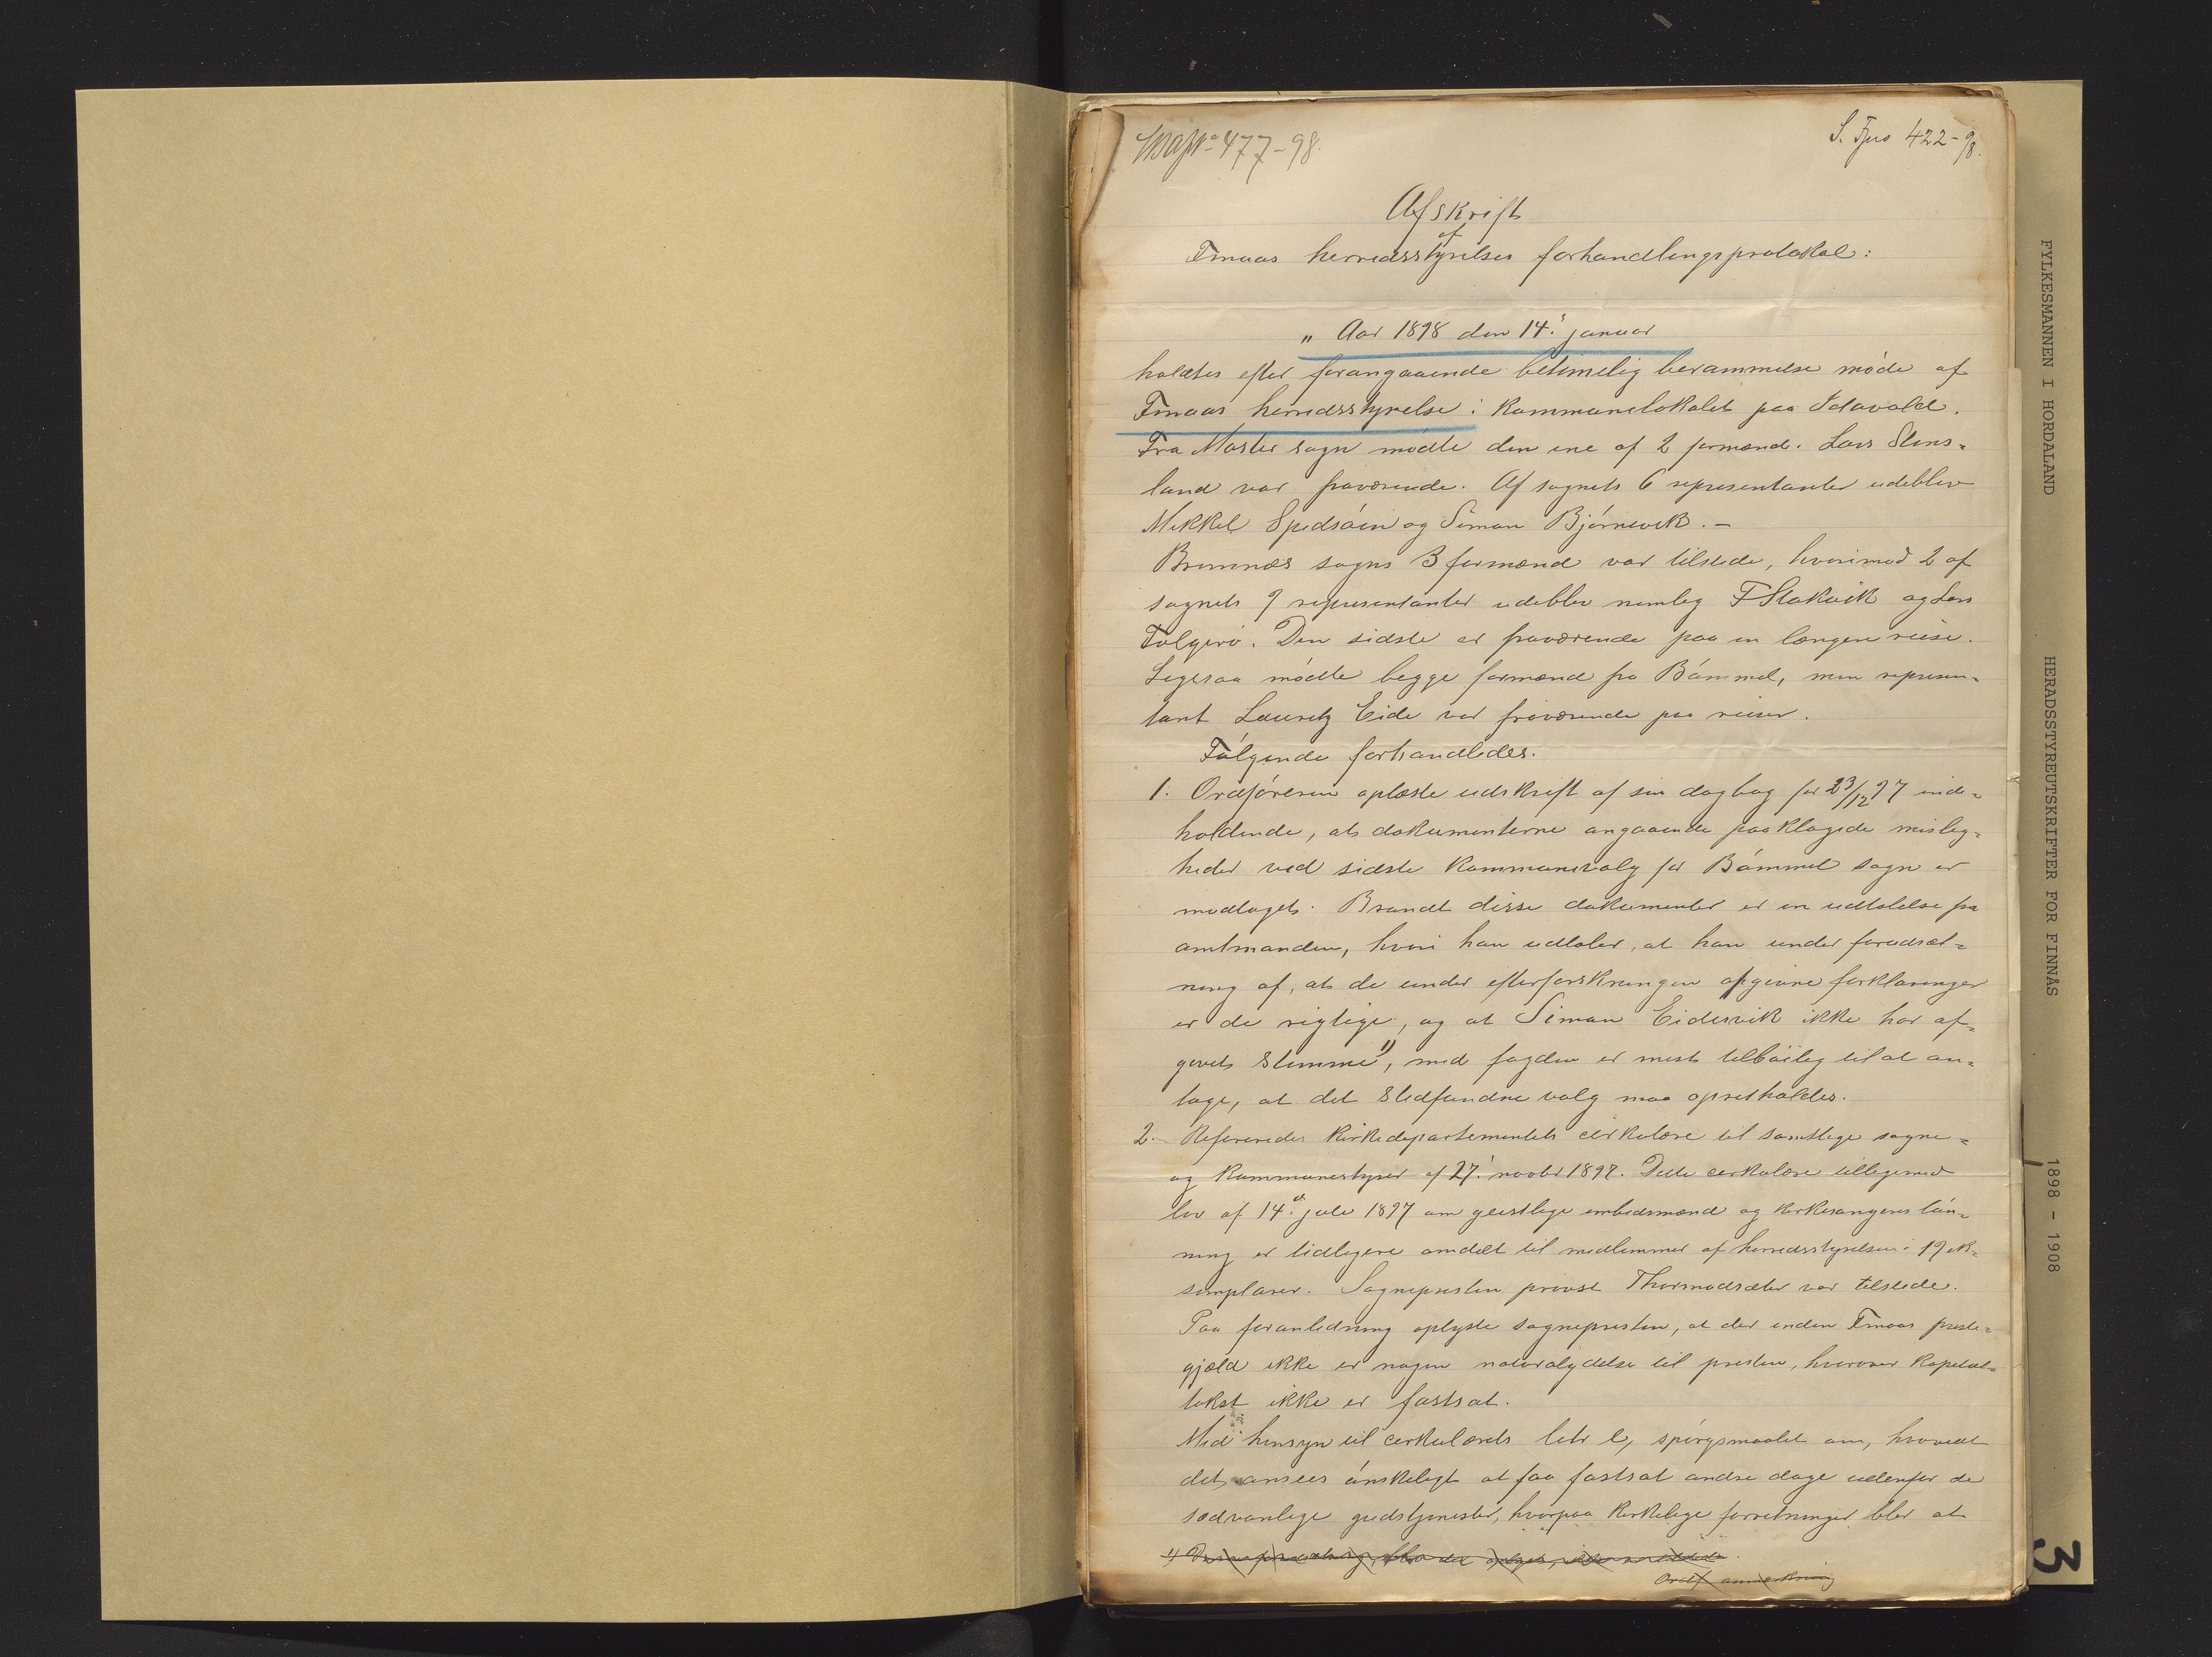 477-98.
S. Fjos 422-98.
Afskrift
af
Finnaas herredsstyrelses forhandlingsprotokol:
„ Aar 1898 den 14. januar
holdtes efter forangaaende betimelig berammelse møde af
Finaas herredsstyrelse i kommunelokalet paa Idavold.
Fra Moster sogn mødte den ene af 2 formænd. Lars Stens-
land var fraværende. Af sognets 6 representanter udeblev
Mikkel Spidsøen og Simon Bjørnevik. –
Bremnæs sogns 3 formænd var tilstede, hvorimod 2 af
sognets 9 representanter udeblev nemlig F Stokvik og Lars
Folgerø. Den sidste er fraværende paa en længere reise.
Ligesaa mødte begge formænd fra Bømmel, men represen-
tant Lauritz Eide var fraværende paa reiser.
Følgende forhandledes.
1. Ordføreren oplæste udskrift af sin dagbog for 23/12 97 inde-
holdende, at dokumenterne angaaende paaklagede mislig-
heder ved sidste kommunevalg for Bømmel sogn er
modtaget. Brandt disse dokumenter er en udtalelse fra
amtmanden, hvori han udtaler, at han under forudsæt-
ning af, at de under efterforskningen afgivne forklaringer
er de rigtige, og at Simon Eidesvik ikke har af-
givet stemme 1), med fogden er mest tilbøilig til at an-
tage, at det stedfundne valg maa opretholdes.
2. Refereredes kirkedepartementets cirkulære til samtlige sogne-
og kommunestyrer af 27. novbr 1897. Dette cirkulære tilligemed
lov af 14. juli 1897 om geistlige embedsmænd og kirkesangeres løn-
ning er tidligere omdelt til medlemmer af herredsstyrelsen i 19 ek-
semplarer. Sognepresten provst Thormodsæter var tilstede.
Paa foranledning oplyste sognepresten, at der inden Finaas preste-
gjæld ikke er nogen naturalydelse til presten, hvorover kapital-
takst ikke er fastsat.
Med hensyn til cirkulærets litr e, spørgsmaalet om, hvorvidt
det ansees ønskeligt at faa fastsat andre dage udenfor de
sædvanlige gudstjenester, hvorpaa kirkelige forretninger blir at
1) Denne forudsætning,
Ordf. anmerkning
FYLKESMANNEN I HORDALAND
HERADSSTYREUTSKRIFTER FOR FINNÅS
1898 - 1908
3